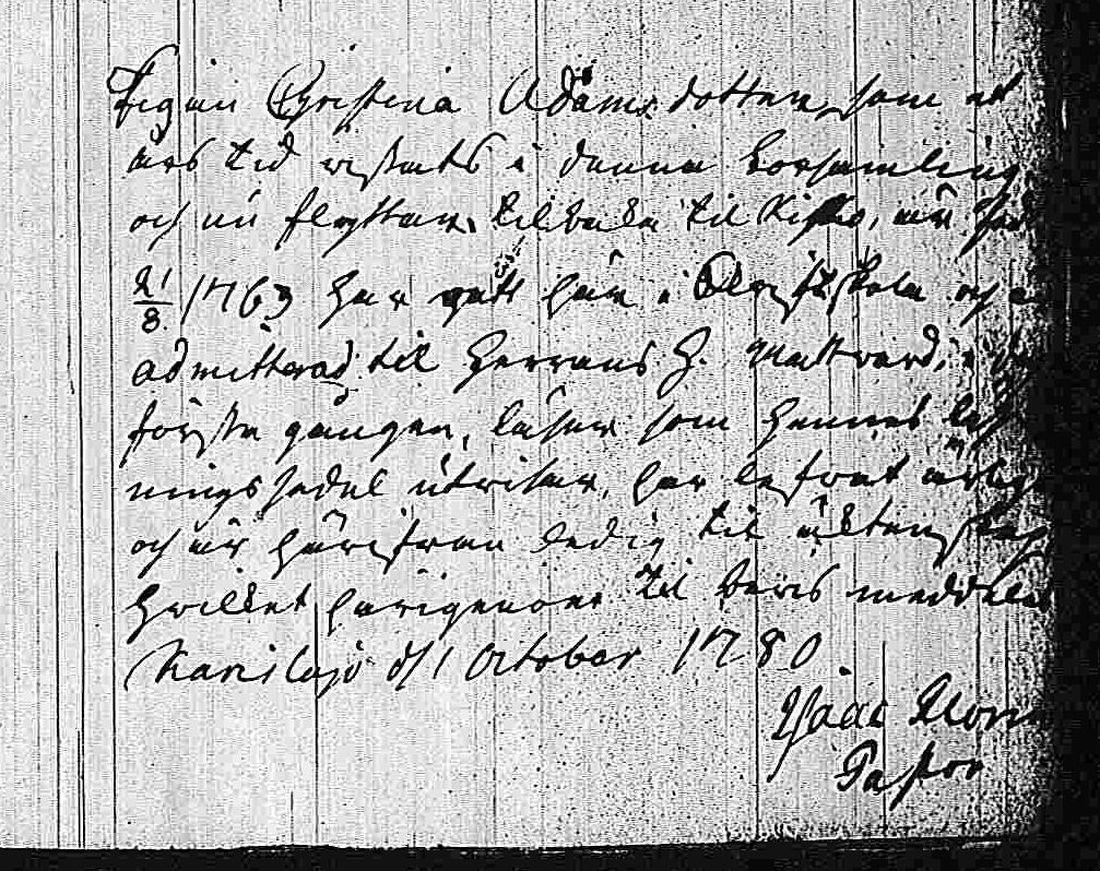 Pigan Christina Adamsdotter, som et
års tid vistats i denna Församling
och nu flyttar tilbaka til Kisko, är
21/8 1763 har gått här i Skriftskola och
admitterad til Herrans H. Nattvard,
första gången, läser som hennes
ningssedel utvisar, har lefvat
och är härifrån ledig til äktenskap
hvilket härigenom til bevis meddelas
Karislojo d 1 October 1780.
Isaac
Pastor